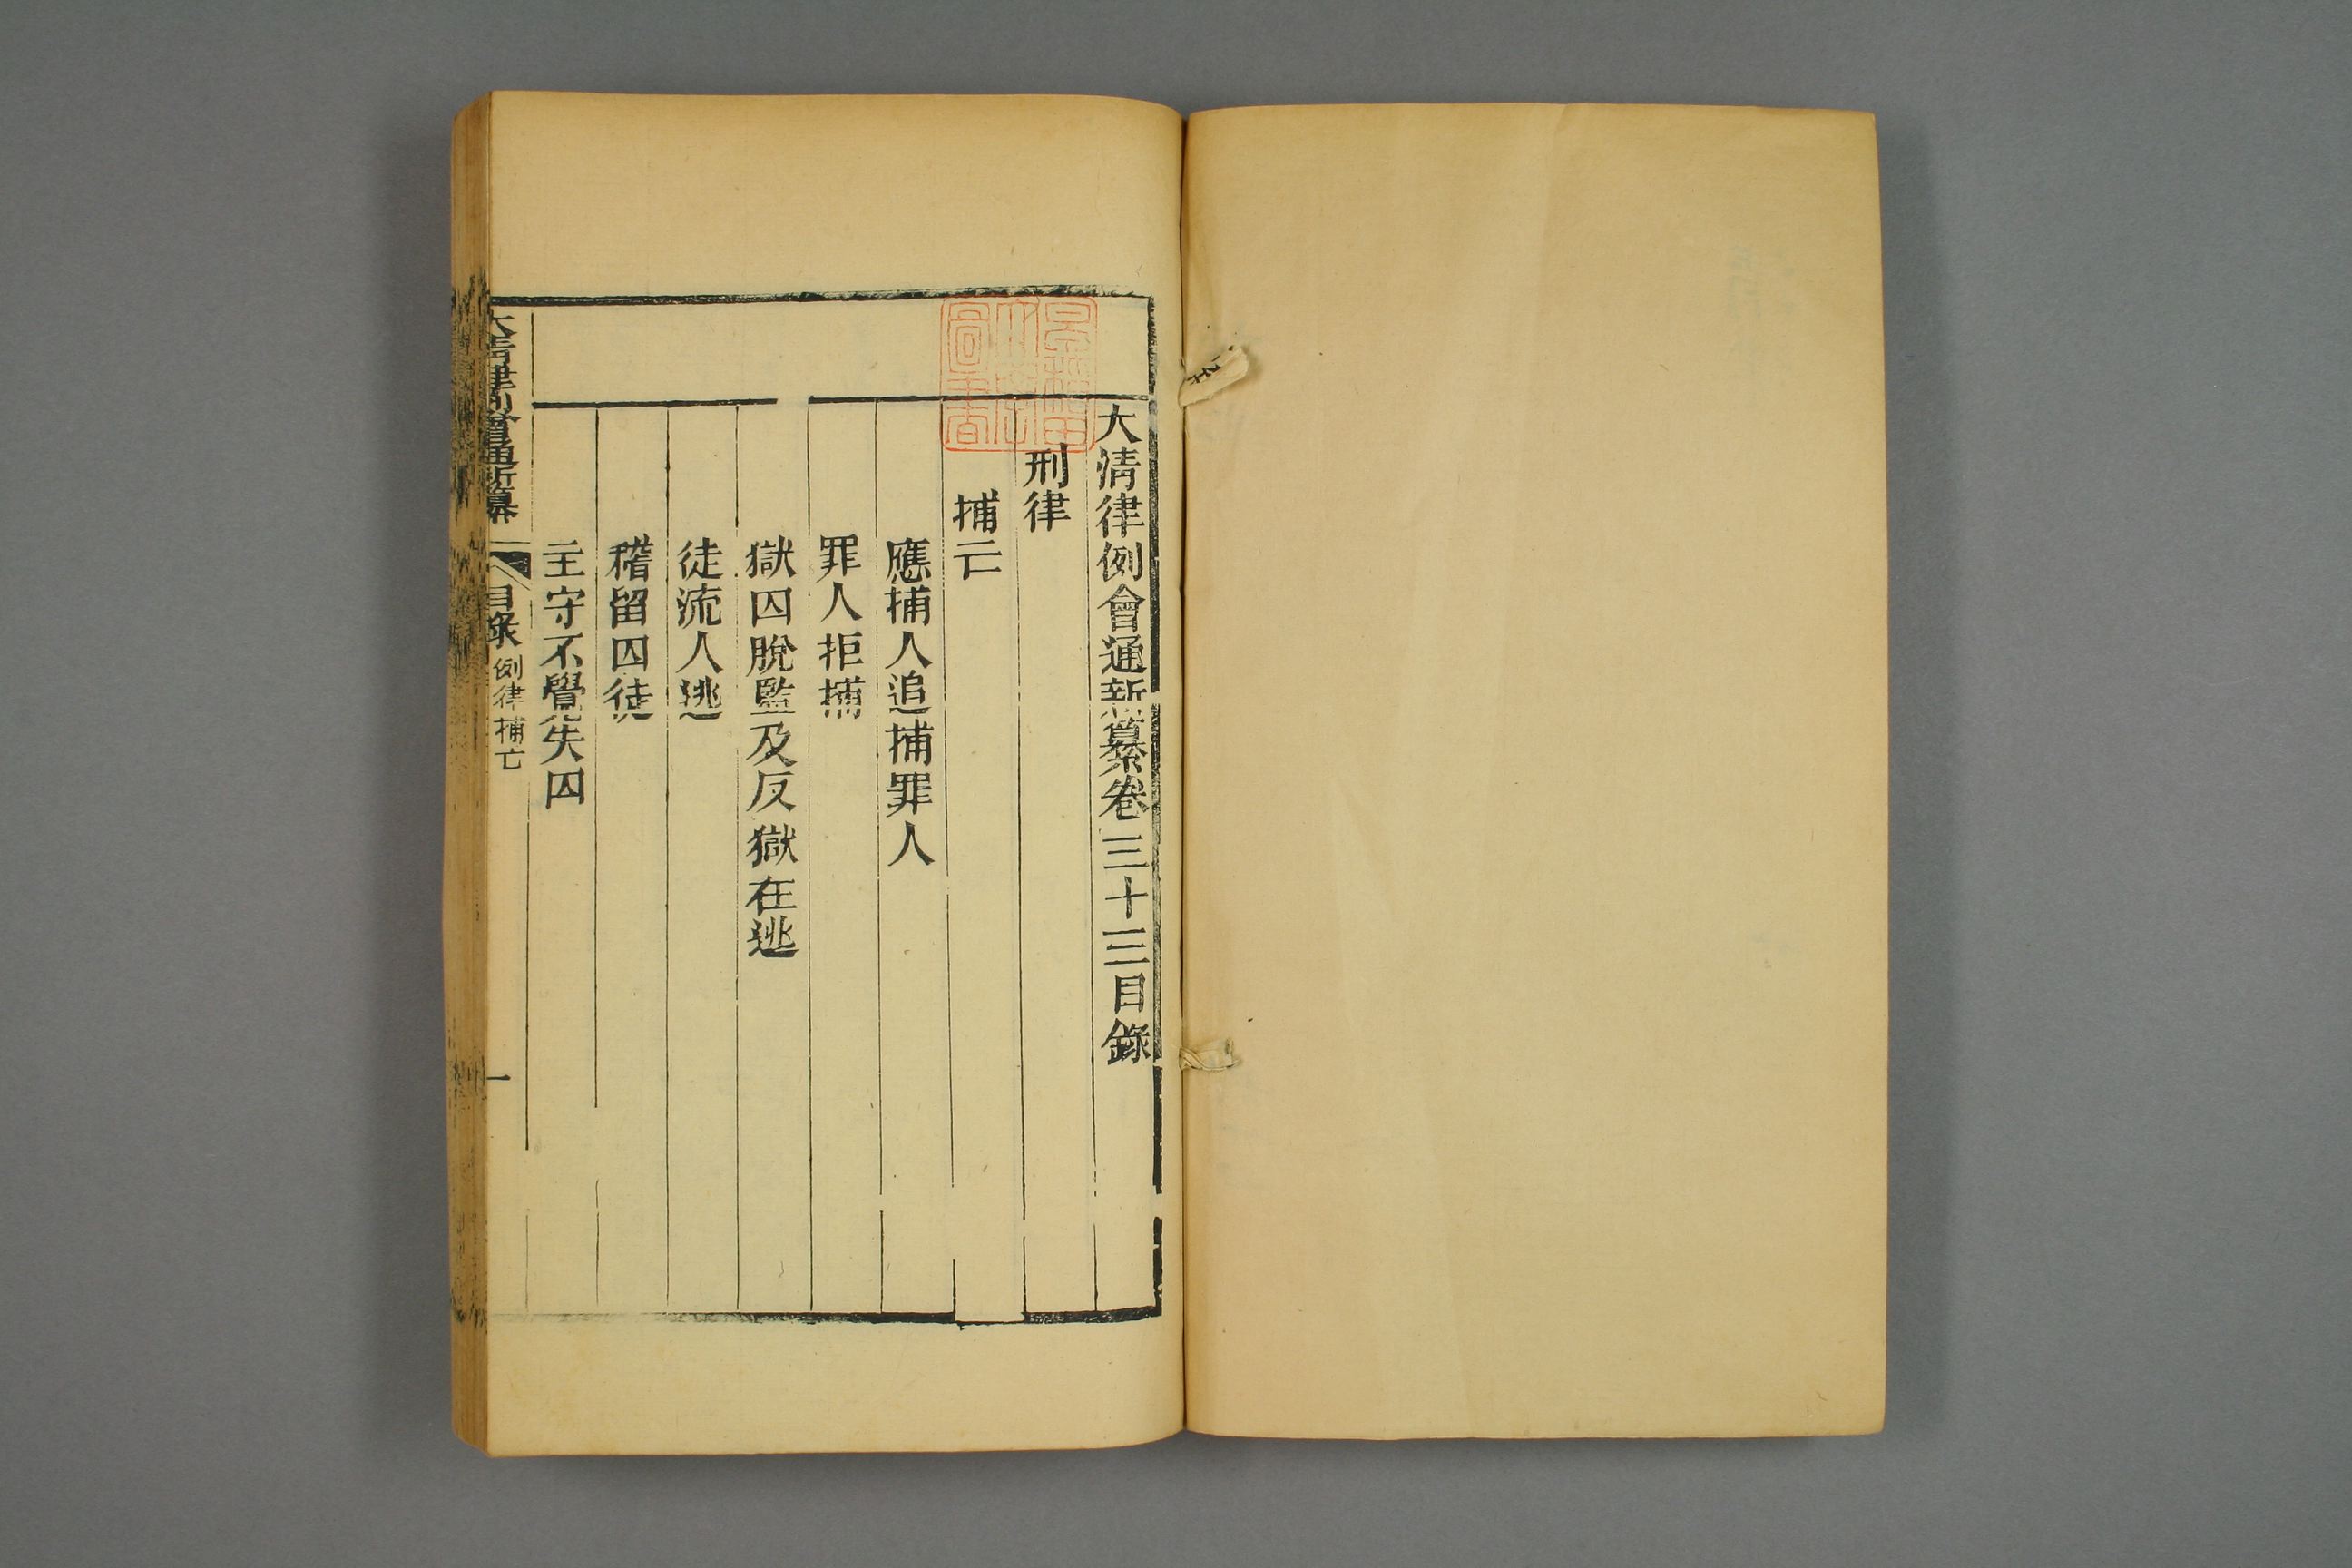 大清律例會通新纂卷三十三目錄
刑律
捕亡
應捕人追捕罪人
罪人拒捕
獄囚脫監及反獄在逃
徒流人逃
稽留囚徒
主守不覺失囚
大清律例會通新纂
目錄
例律捕亡
一